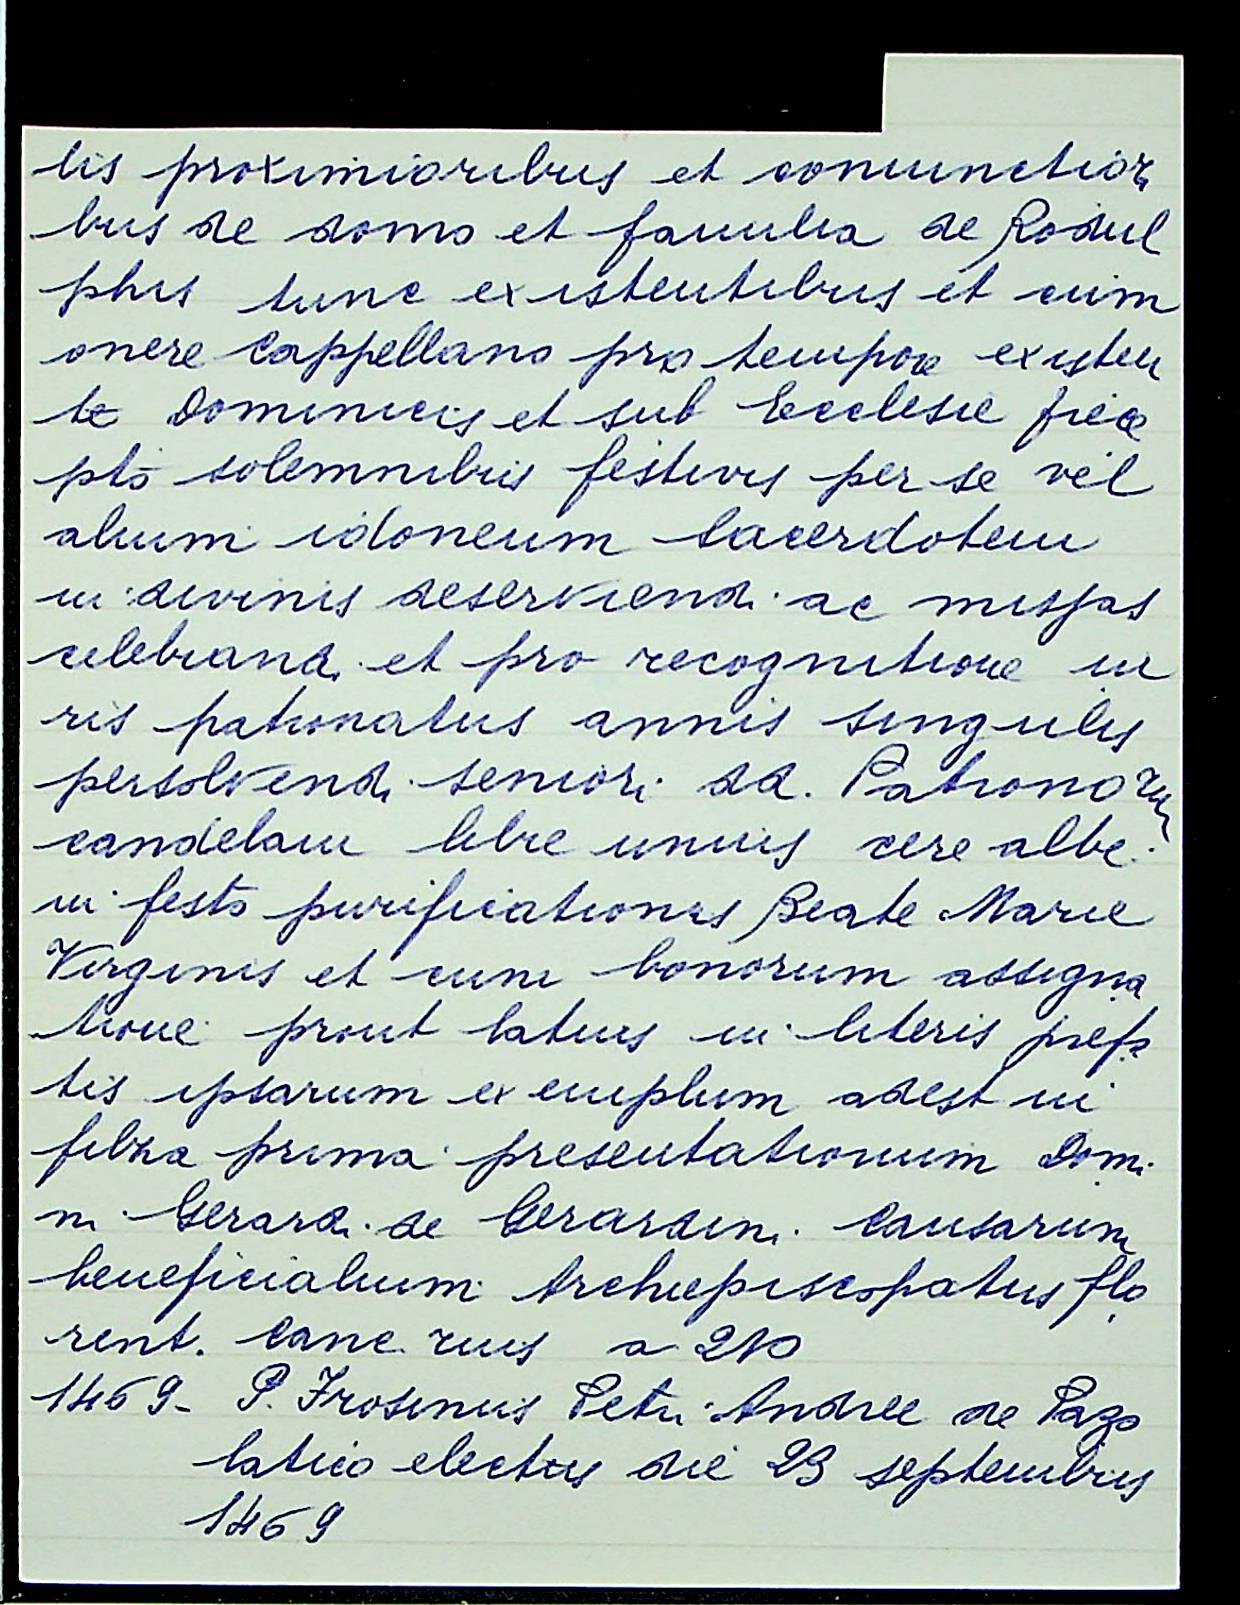 lis proximioribus et coniunctiori
bus de domo et familia de Rodul
phis tunc existentibus et cum
onere Cappellano pro tempore existen
te Dominicis et sub Ecclesie
solemnibus festivis per se vel
alium idoneum Sacerdotem
in divinis deserviendi ac missas
celebrandi et pro recognitione iu
ris patronatus annis singulis
persolvendi seniori dd. Patronorum
candelam libre unius cere albe
in festo purificationis Beate Marie
Virginis et cum bonorum assigna
tione prout latius in literis prefa
tis ipsarum exemplum adest in
filza prima presentationum Domi
ni Gerardi de Gerardini Causarum
beneficialium Archiepiscopatus flo
rent. Canc rius a 210
1469- P. Frosinus Petri Andree de Pazo
latico electus die 23 septembris
1469